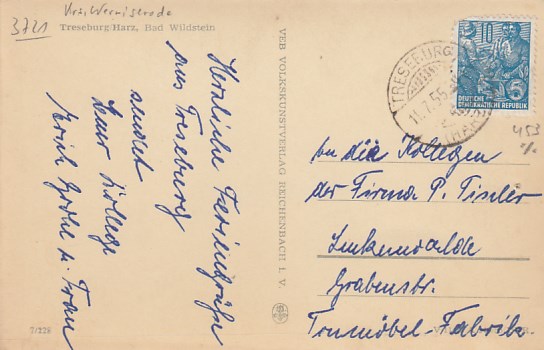 3721
Krs. Wernigerode
Treseburg/Harz, Bad Wildstein
Herzliche Feriengrüße
aus Treseburg
sendet
Euer Kollege
Erich Grohe u. Frau
7/228
VEB VOLKSKUNSTVERLAG REICHENBACH I. V.
TRESEBURG
11.7.55
(HARZ)
10
5
DEUTSCHE
DEMOKRATISCHE REPUBLIK
453
An die Kollegen
der Firma P. Tischler
Luckenwalde
Grabenstr.
Tonmöbel-Fabrik